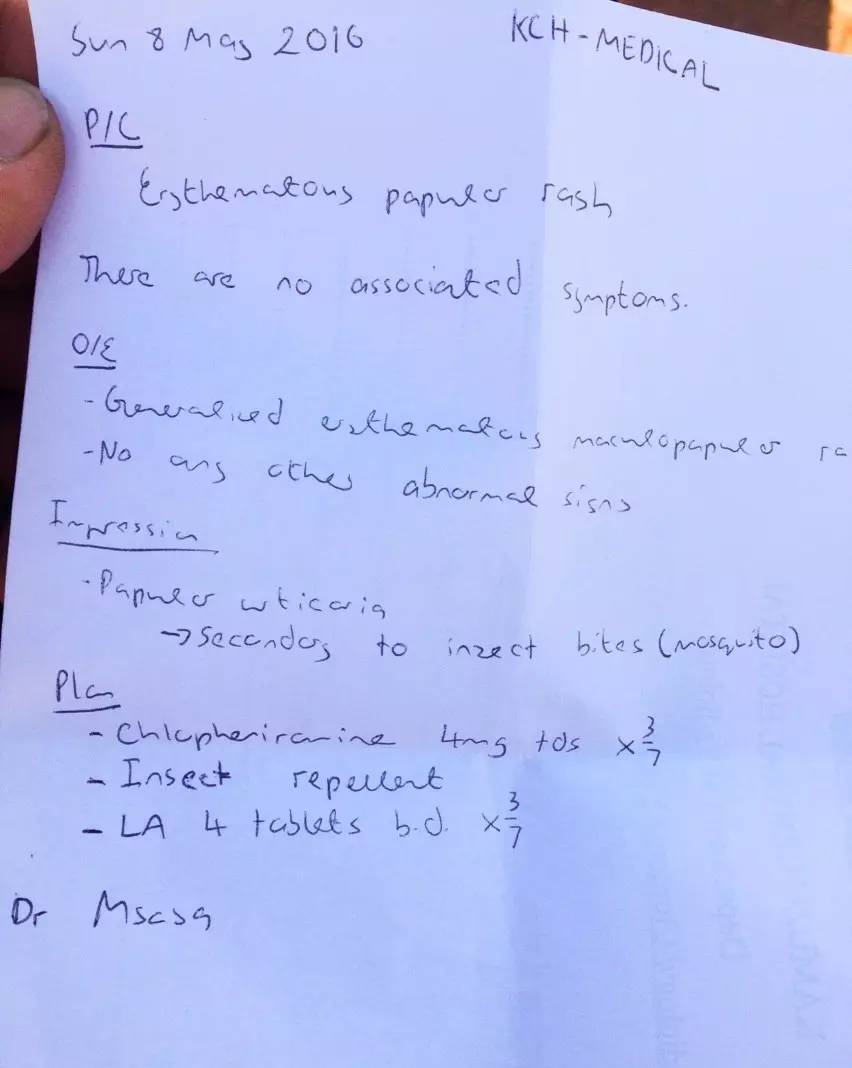 Sun 8 May 2016
KCH - MEDICAL
P/C
Erythematous papular rash
There are no associated symptoms.
O/E
- Generalised erythematous maculopapular ra
- No any other abnormal signs
Impression
- Papular urticaria
→ Secondary to insect bites (mosquito)
Plan
- Chlopheniramine 4mg tds x 3/7
- Insect repellent
- LA 4 tablets b.d. x 3/7
Dr